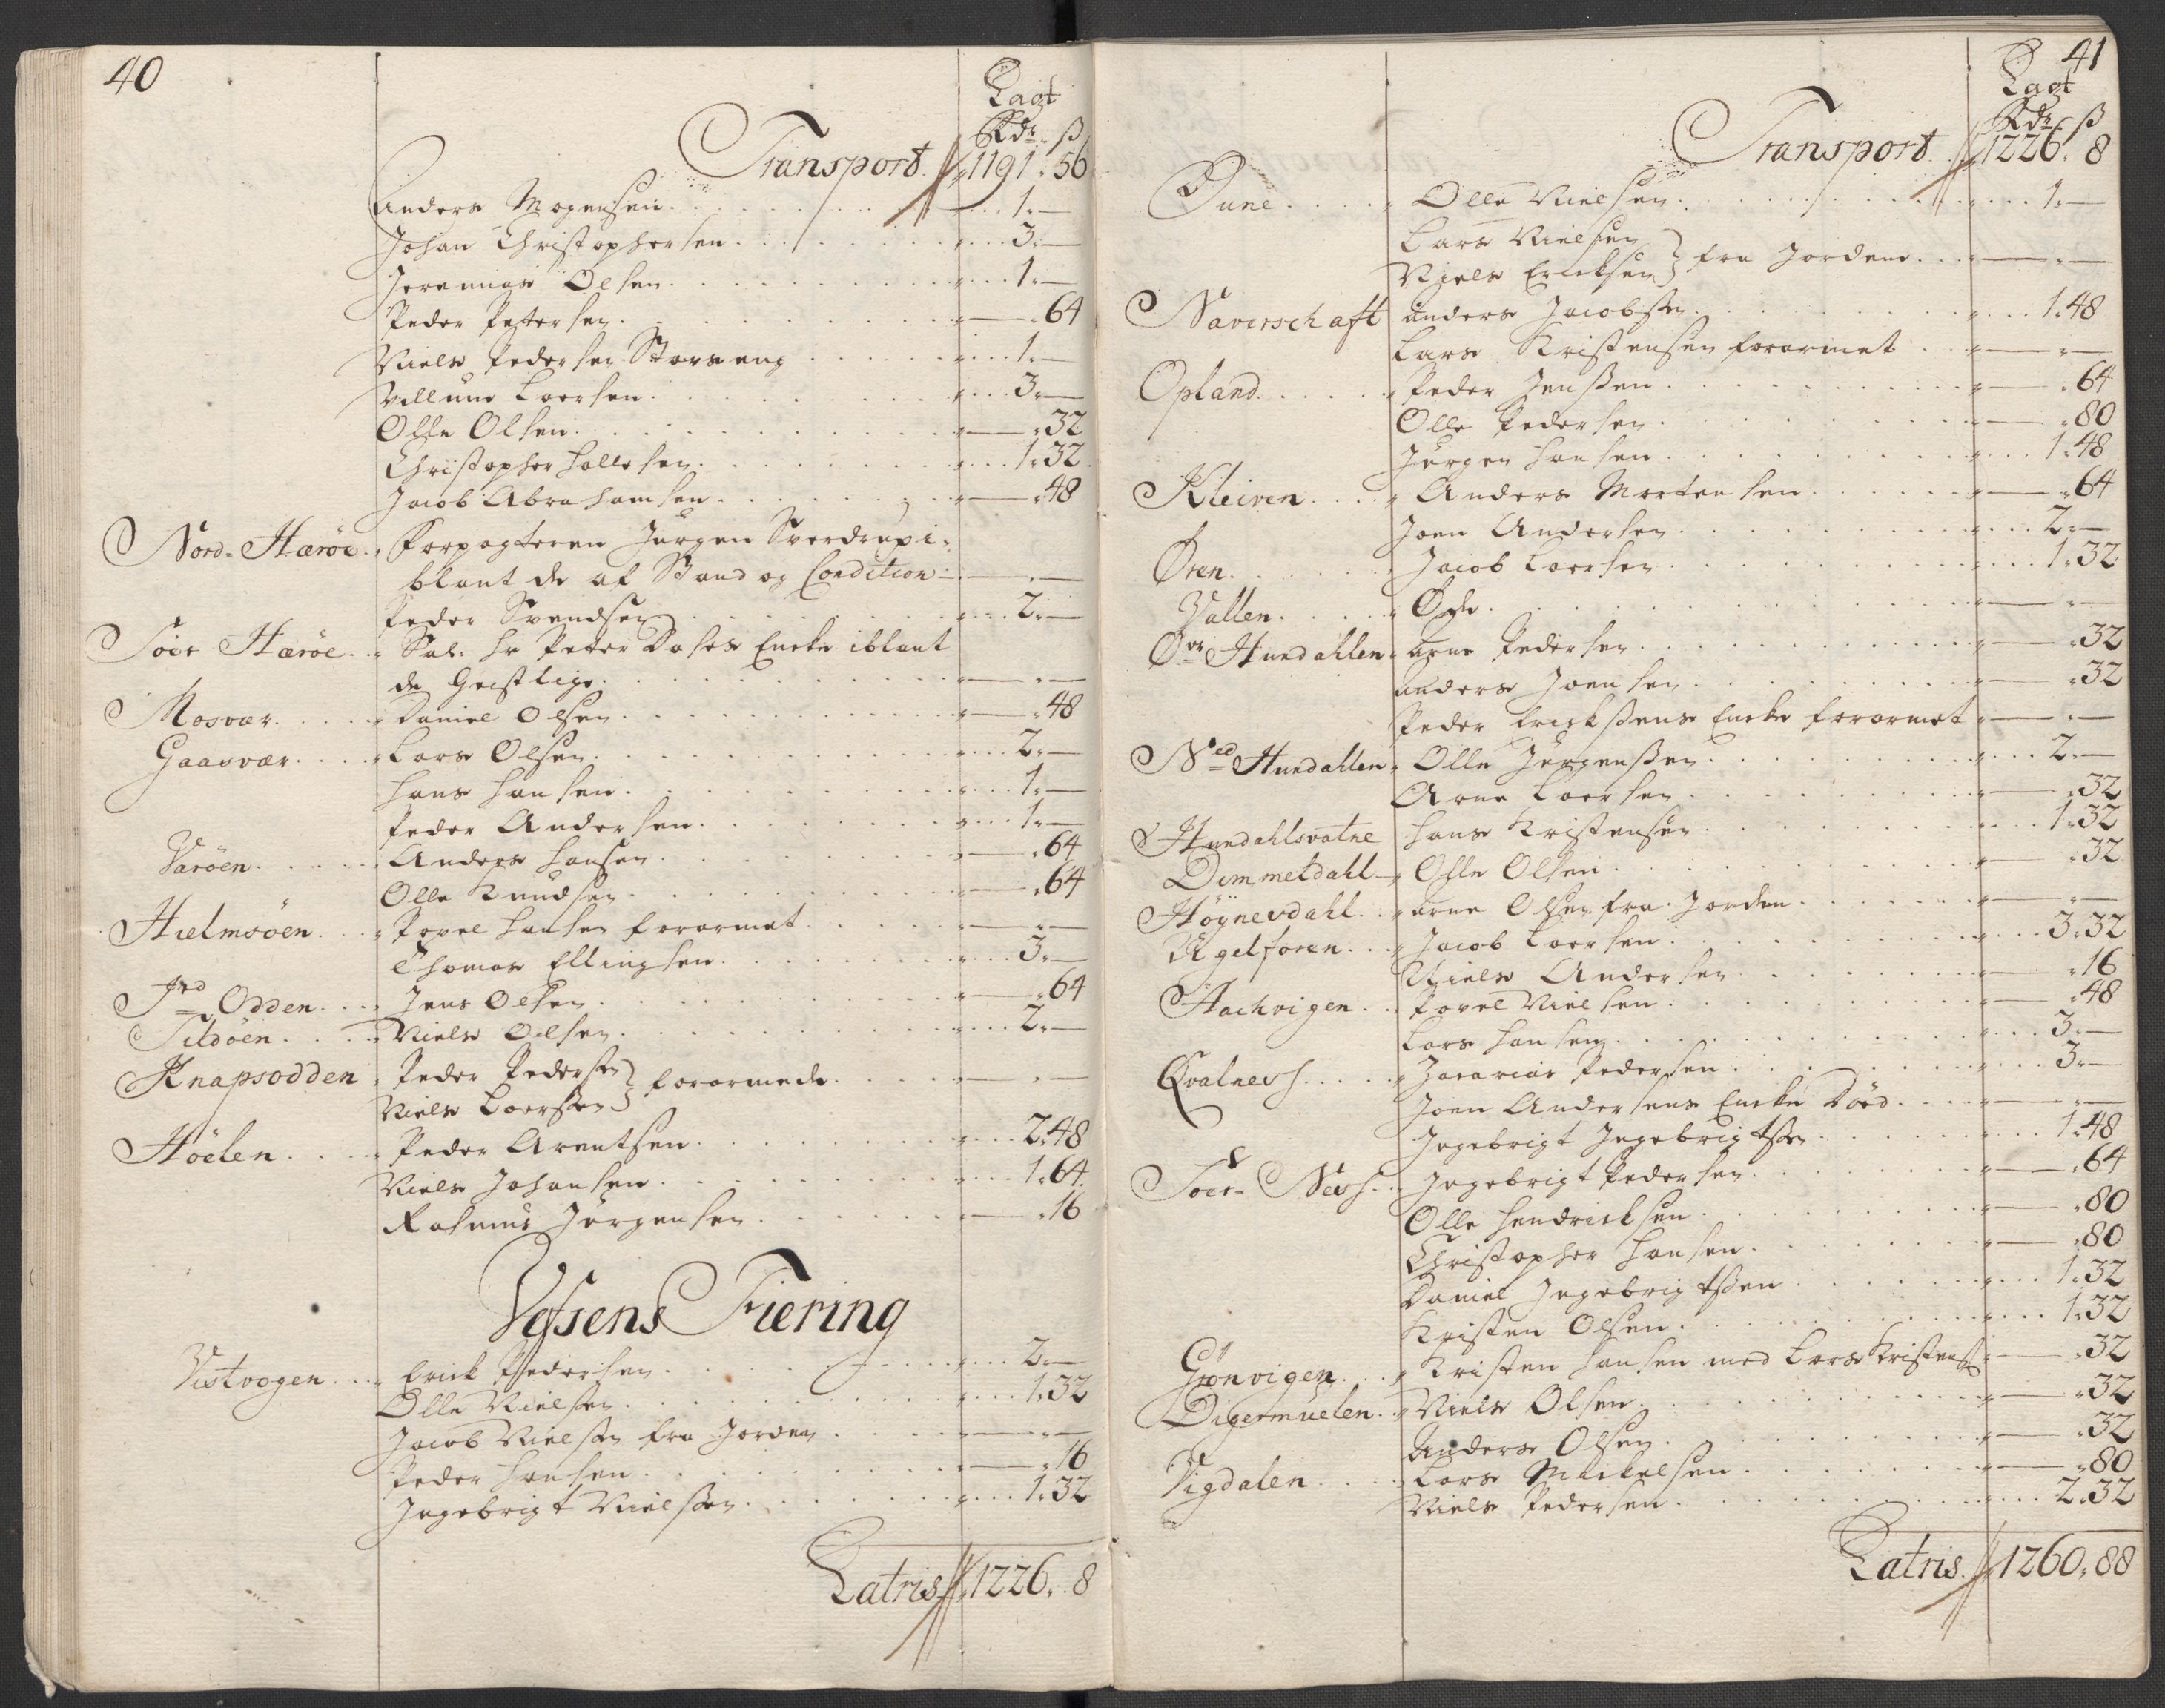 40
Lagt
Rdr ß
Transport 1191 : 56
Anders Mogensen . . . 1 : —
Johan Christophersen . . . 3 : —
Jeremias Olsen . . . 1 : —
Peder Petersen . . . — : 64
Niels Pedersen Storseng . . . 1 : —
Villum Loersen . . . 3 : —
Olle Olsen . . . — : 32
Christopher Hollesen . . . 1 : 32
Jacob Abrahamsen . . . — : 48
Nord = Hærøe . Forpagteren Jurgen Sverdrup i-
blant de af Stand og Condition — : —
Peder Svendsen . . . 2 : —
Søer Hærøe . . Sal. Hr Peter Dases Encke iblant
de Geistlige . . . — : —
Mosvær . . . Daniel Olsen . . . — : 48
Gaasvær . . . Lars Olsen . . . 2 : —
Hans Hansen . . . 1 : —
Peder Andersen . . . 1 : —
Varøen . . . Anders Hansen . . . — : 64
Olle Knudsen . . . — : 64
Hielmsöen . . . Povel Hansen forarmet . . . — : —
Thomas Ellingsen . . . 3 : —
Odden . . . Jens Olsen . . . — : 64
Tildöen . . . Niels Olsen . . . 2 : —
Knapsodden Peder Pedersen
Niels Loerssen } forarmede . . . — : —
Höelen . . . Peder Arentsen . . . 2 : 48
Niels Johansen . . . 1 : 64
Rasmus Jørgensen . . . — : 16
Vefsens Fiering
Vistvogen . . . Erick Pedersen . . . 2 : —
Olle Nielsen . . . 1 : 32
Jacob Nielsen fra Jorden . . . — : —
Peder Hansen . . . — : 16
Ingebrigt Nielssen . . . 1 : 32
Latris 1226 : 8
41
Lagt
Rdr ß
Transport 1226 : 8
Dune . . . Olle Nielsen . . . 1 : —
Lars Nielsen
Niels Ericksen } fra Jordene . . . — : —
Naverschaft Anders Jacobsen . . . 1 : 48
Lars Kristensen forarmet . . . — : —
Opland . . . Peder Jenssen . . . — : 64
Olle Pedersen . . . — : 80
Jürgen Hansen . . . 1 : 48
Kleiven . . . Anders Mortensen . . . — : 64
Joen Andersen . . . 2 : —
Øren . . . Jacob Loersen . . . 1 : 32
Vallen . . . Øde . . . — : —
Øvr Hundahlen Arne Pedersen . . . — : 32
Anders Joensen . . . — : 32
Peder Erickssens Encke forarmet — : —
Ned Hundahlen Olle Jørgenssen . . . 2 : —
Arne Loersen . . . — : 32
Hundahlsvatne Hans Kristensen . . . 1 : 32
Dimmeldahl Olle Olsen . . . — : 32
Høynesdahl . . . Arne Olsen fra Jorden . . . — : —
Ugelforen . . . Jacob Loersen . . . 3 : 32
Niels Andersen . . . — : 16
Hachvigen . . . Povel Nielsen . . . — : 48
Lars Hansen . . . 3 : —
Qvalnes . . . Zacarias Pedersen . . . 3 : —
Joen Andersens Encke Död . . . — : —
Ingebrigt Ingebrigtsen . . . 1 : 48
Söer = Nes . . . Ingebrigt Pedersen . . . — : 64
Olle Hendricksen . . . — : 80
Christopher Hansen . . . — : 80
Daniel Ingebrigtssen . . . 1 : 32
Kristen Olsen . . . 1 : 32
Grönvigen . . . Kristen Hansen med Lars Kristens — : 32
Digermuelen . . . Niels Olsen . . . — : 32
Anders Olsen . . . — : 32
Vigdalen . . . Lars Mickelsen . . . — : 80
Niels Pedersen . . . 2 : 32
Latris . 1260 : 88